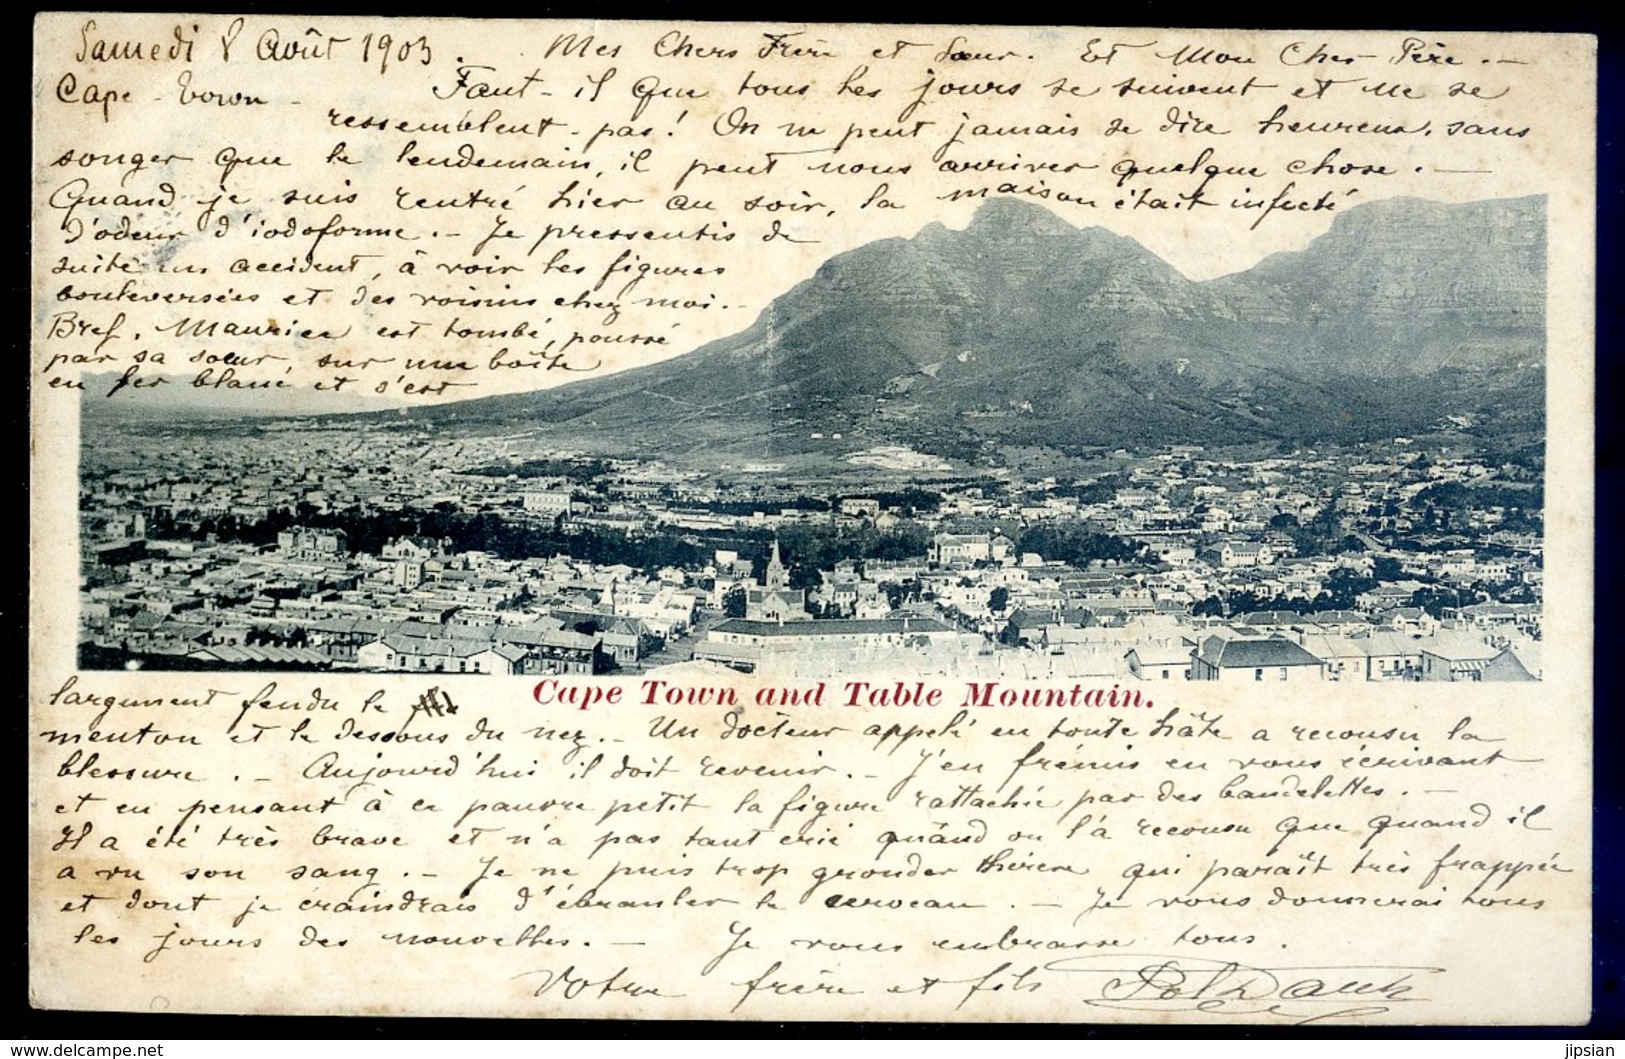 Samedi 8 Août 1903. Mes Chers Frère et Sœur. Et Mon Cher Père. —
Cape-Town - Faut-il que tous les jours se suivent et ne se
ressemblent-pas! On ne peut jamais se dire heureux, sans
songer que le lendemain, il peut nous arriver quelque chose. —
Quand je suis rentré hier au soir, la maison était infecté
d'odeur d'iodoforme. — Je pressentis de
suite un accident, à voir les figures
bouleversées et des voisins chez moi. —
Bref, Maurice est tombé, poussé
par sa sœur, sur une boîte
en fer blanc et s'est
Cape Town and Table Mountain.
largument fendu le
menton et le dessous du nez. — Un docteur appelé en toute hâte a recousu la
blessure. — Aujourd'hui il doit revenir. — J'en frémis en vous écrivant
et en pensant à ce pauvre petit la figure rattachée par des bandelettes. —
Il a été très brave et n'a pas tant crié quand on l'a recousu que quand il
a vu son sang. — Je ne puis trop gronder qui paraît très frappée
et dont je craindrais d'ébranler le cerveau. — Je vous donnerai tous
les jours des nouvelles. — Je vous embrasse tous.
Votre frère et fils
jipsian